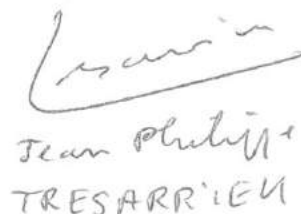 Jean Philippe
TRESARRIEU